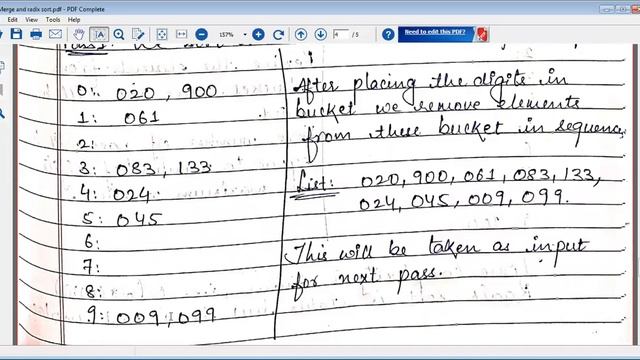 Merge and radix sort.pdf - PDF Complete
Edit View Tools Help
157%
4 / 5
Need to edit this PDF?
0: 020, 900
1: 061
2:
3: 083, 133
4: 024
5: 045
6:
7:
8:
9: 009, 099
After placing the digits in
bucket we remove elements
from these bucket in sequence
List: 020, 900, 061, 083, 133,
024, 045, 009, 099.
This will be taken as input
for next pass.